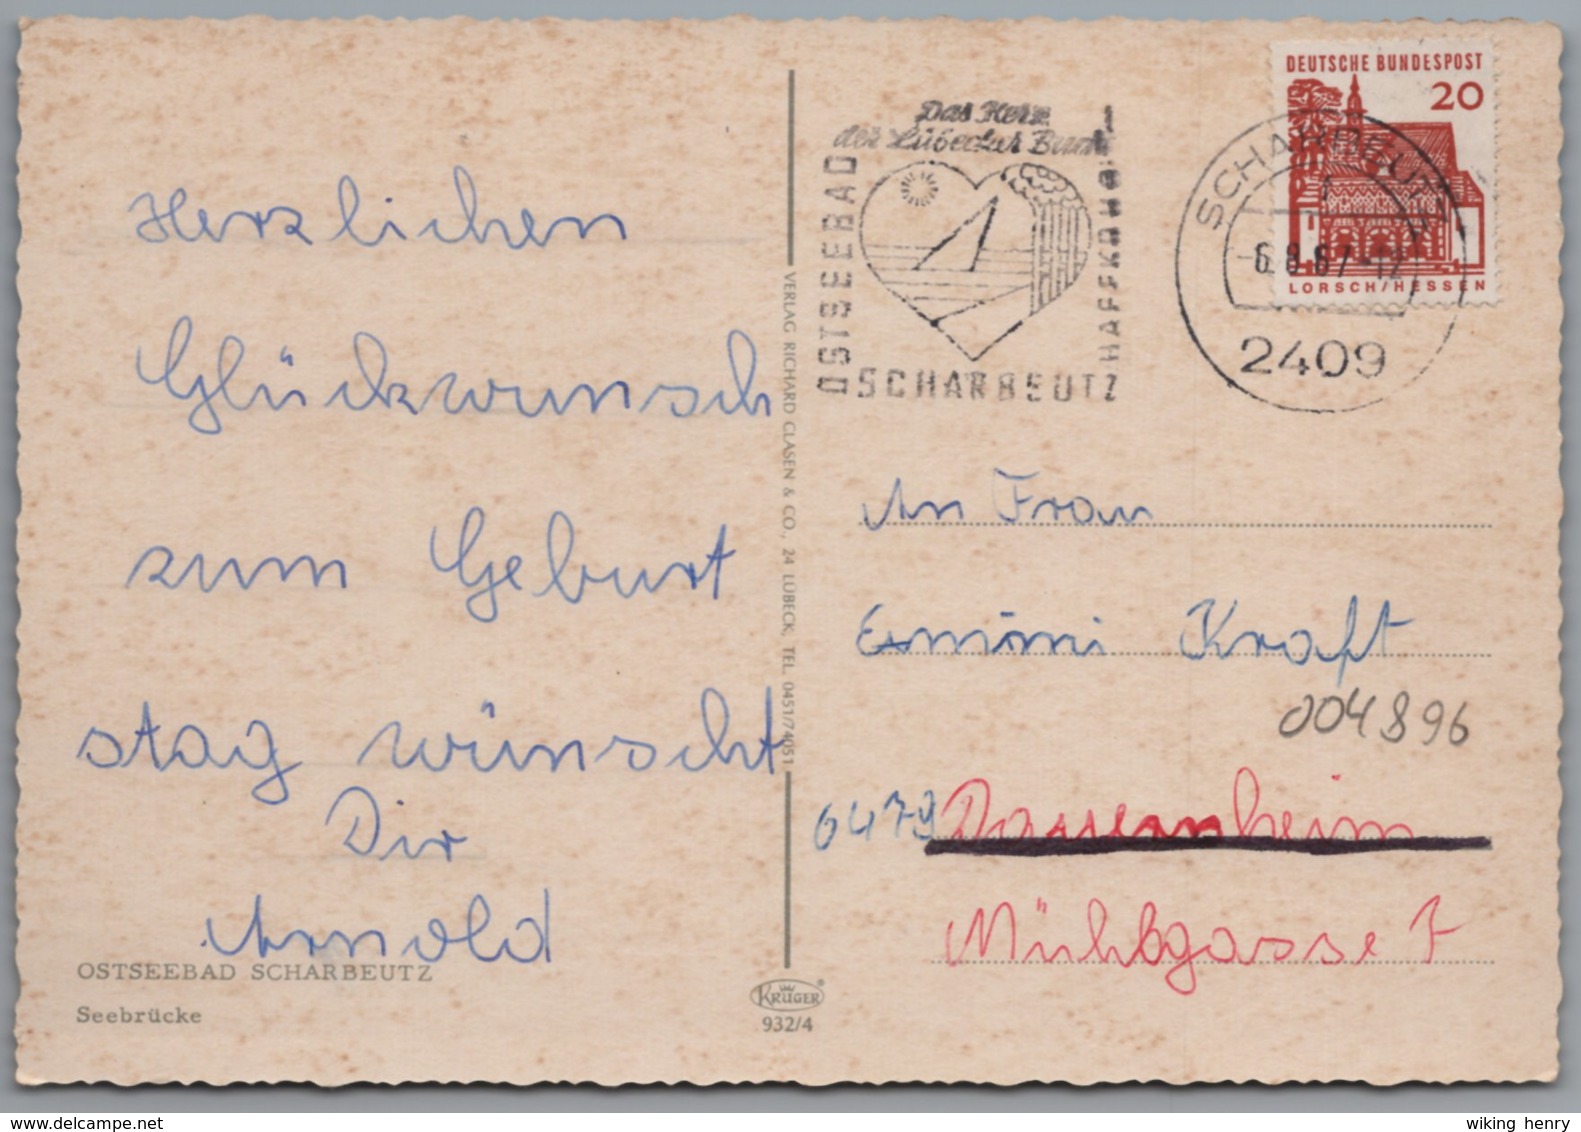 Herzlichen
Glückwunsch
zum Geburt
stag wünscht
Dir
Arnold
OSTSEEBAD SCHARBEUTZ
Seebrücke
VERLAG RICHARD CLASEN & CO., 24 LÜBECK, TEL. 0451/74051
KRÜGER
932/4
Das Herz
der Lübecker Bucht
OSTSEEBAD
SCHARBEUTZ
HAFFKRUG
SCHARBEUTZ
-6.8.67-12
2409
DEUTSCHE BUNDESPOST
20
LORSCH/HESSEN
An Frau
Kraft
004896
6479 Dauernheim
Mühlgasse 7
wiking henry